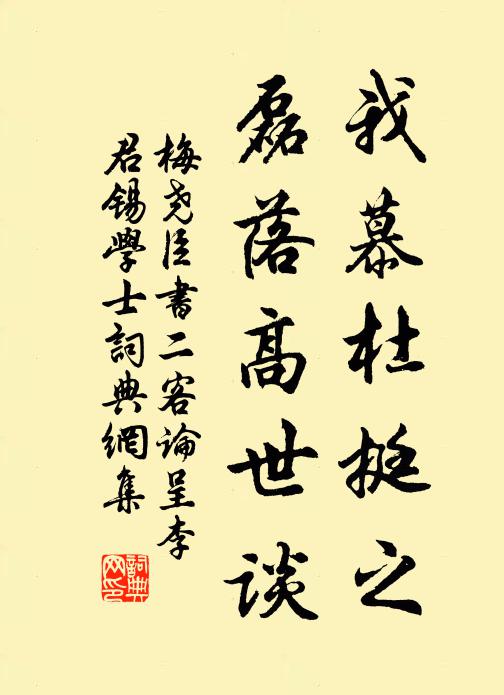 我慕杜挺之
磊落高世谈
梅尧臣書二客論呈李
君錫學士詞典網集
詞典网印